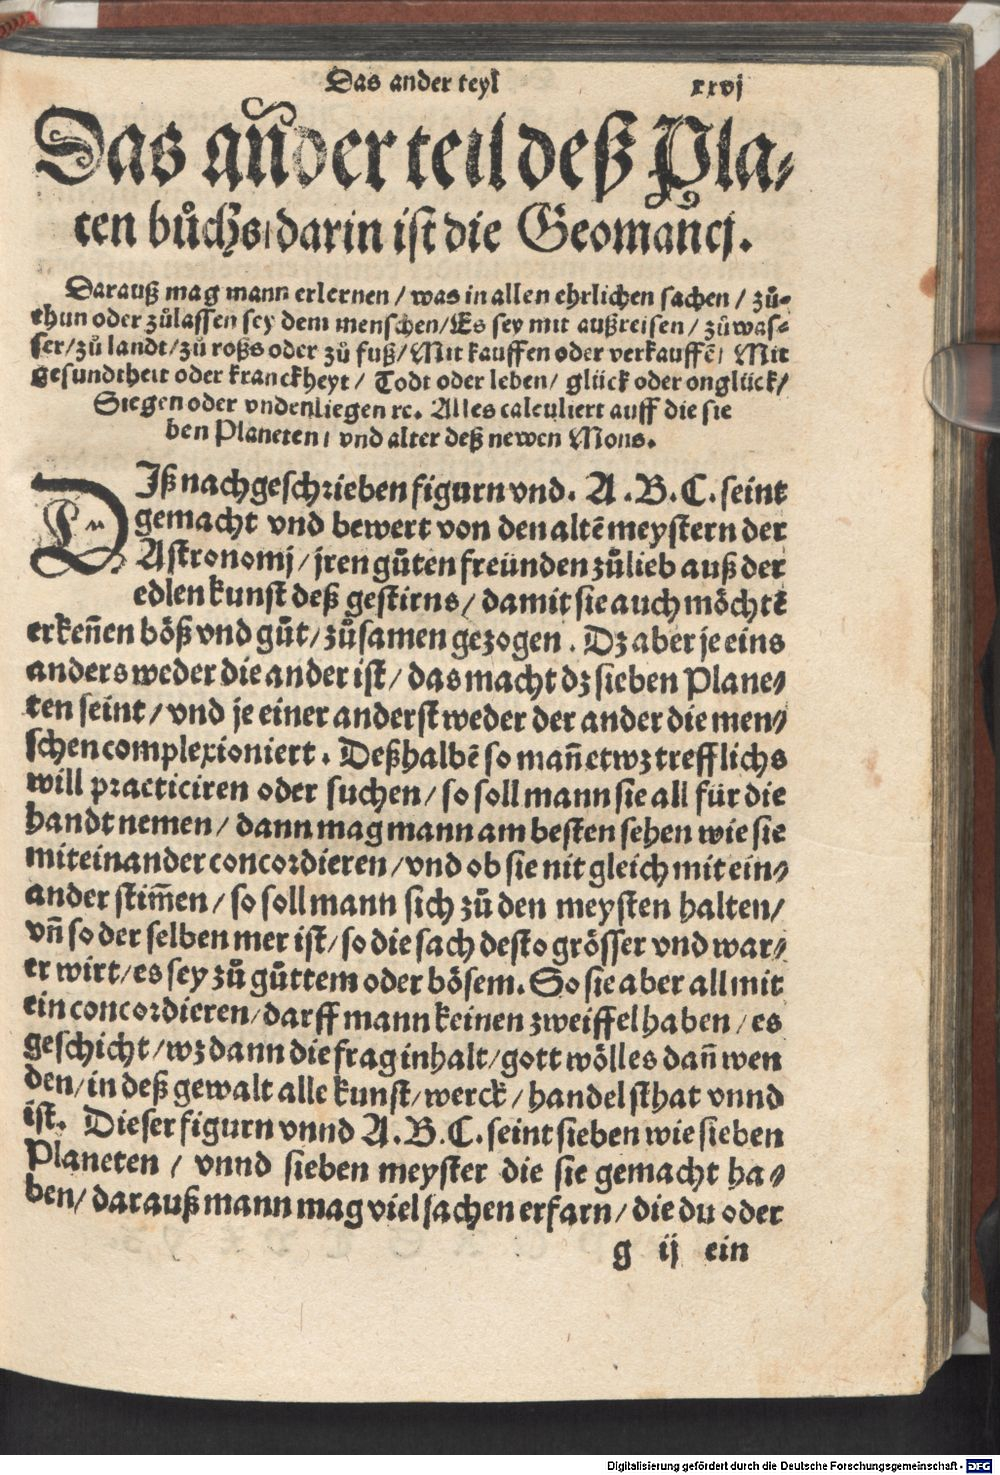 Das ander teyl xxvj
Das añder teil deß Pla-
ten bůchs/darin ist die Geomañcj.
Darauß mag mann erlernen / was in allen ehrlichen sachen / zů-
thun oder zůlassen sey dem menschen/Es sey mit außreisen / zů was-
ser/zů landt/zů roßs oder zů fuß/Mit kauffen oder verkauffē/ Mit
gesundtheit oder kranckheyt / Todt oder leben/ glück oder onglück/
Siegen oder vndenliegen ꝛc. Alles calculiert auff die sie
ben Planeten/ vnd alter deß newen Mons.
DIß nachgeschrieben figurn vnd. A .B.C. seint
gemacht vnd bewert von den altē meystern der
Astronomj / jren gůten freunden zůlieb auß der
edlen kunst deß gestirns/ damit sie auch möchtē
erkeñen böß vnd gůt/ zůsamen gezogen . Dz aber je eins
anders weder die ander ist/ das macht dz sieben Plane-
ten seint/ vnd je einer anderst weder der ander die men-
schen complexioniert. Deßhalbē so mañ etwz trefflichs
will practiciren oder suchen/ so soll mann sie all für die
handt nemen/ dann mag mann am besten sehen wie sie
miteinander concordieren/vnd ob sie nit gleich mit ein-
ander stim̄en/ so soll mann sich zů den meysten halten/
vñ so der selben mer ist/ so die sach desto grösser vnd war-
er wirt/es sey zů gůttem oder bösem. So sie aber all mit
ein concordieren/darff mann keinen zweiffel haben/es
geschicht/wz dann die frag inhalt/gott wölles dañ wen
den/in deß gewalt alle kunst/werck/handel sthat vnnd
ist. Dieser figurn vnnd A.B.C. seint sieben wie sieben
Planeten / vnnd sieben meyster die sie gemacht ha-
ben/ darauß mann mag viel sachen erfarn/ die du oder
g ij ein
Digitalisierung gefördert durch die Deutsche Forschungsgemeinschaft - DFG